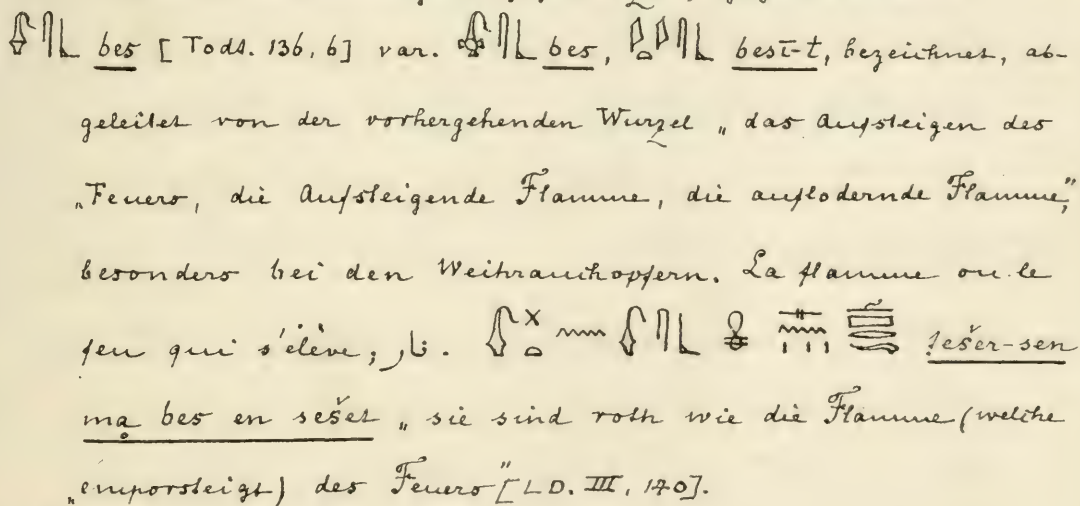 bes [Todt. 136, 6] var. bes, besī-t, bezeichnet, ab-
geleitet von der vorhergehenden Wurzel „das Aufsteigen des
„Feuers, die Aufsteigende Flamme, die auflodernde Flamme,"
besonders bei den Weihrauchopfern. La flamme ou le
feu qui s'élève; نار. ṭešer-sen
mạ bes en sešet „sie sind roth wie die Flamme (welche
„emporsteigt) des Feuers" [LD. III, 140].